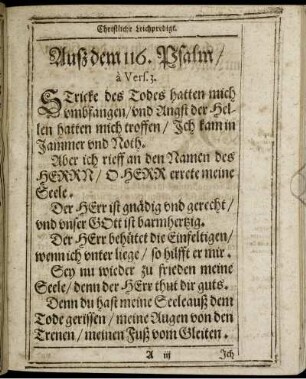 Christliche Leichpredigt.
Auß dem 116. Psalm/
à Vers. 3.
STricke des Todes hatten mich
vmbfangen/ vnd Angst der Hel-
len hatten mich troffen/ Jch kam in
Jammer vnd Noth.
Aber ich rieff an den Namen des
HERRN/ O HERR errete meine
Seele.
Der HErr ist gnädig vnd gerecht/
vnd vnser GOtt ist barmhertzig.
Der HErr behütet die Einfeltigen/
wenn ich vnter liege/ so hilfft er mir.
Sey nu wieder zu frieden meine
Seele/ denn der HErr thut dir guts.
Denn du hast meine Seele auß dem
Tode gerissen/ meine Augen von den
Trenen/ meinen Fuß vom Gleiten.
A iij
Jch